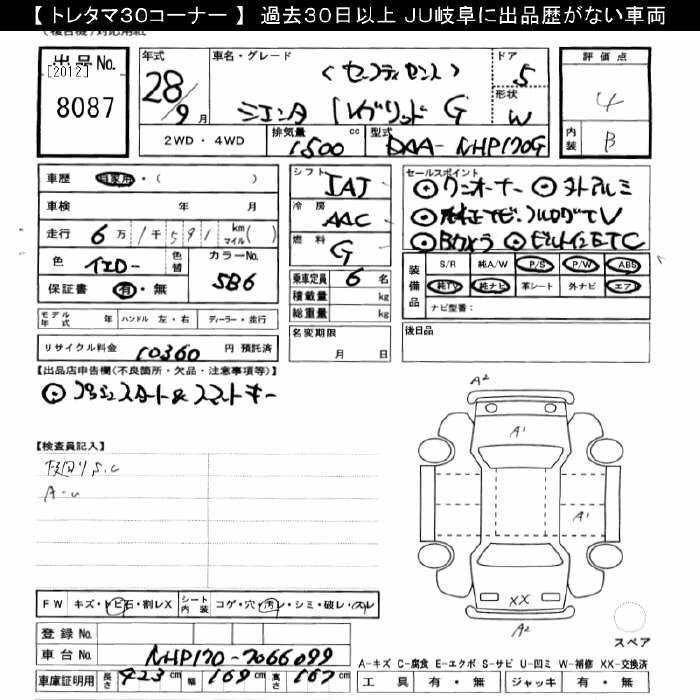 【トレタマ30コーナー】 過去30日以上 JU岐阜に出品歴がない車両
出品No.
[2012]
8087
年式 車名・グレード ドア 評価点
28 (セーフティセンス) 5
9月 シエンタ ハイブリッド G 形状 W 4
2WD・4WD 排気量 1500 cc 型式 DAA-NHP170G 内装 B
車歴 自家用・( )
車検 年 月
走行 6万1千591 km マイル( )
色 イエロー 色替 カラーNo. 5B6
保証書 有・無
シフト IAT
冷房 AAC
燃料 G
乗車定員 6 名
積載量 kg
総重量 kg
名変期限
月 日
セールスポイント
◎ワンオーナー ◎ストアルミ
◎純正ナビ・フルセグTV
◎Bカメラ ◎ビルトインETC
装備品 S/R 純A/W P/S P/W ABS
純TV 純ナビ 革シート 外ナビ エアB
ナビ型番:
後日品
モデル年式 年 ハンドル 左・右 ディーラー・並行
リサイクル料金 10360 円 預託済
【出品店申告欄(不良箇所・欠品・注意事項等)】
◎プッシュスタート&スマートキー
【検査員記入】
A-u
A2
A'
A'
XX
A2
スペア
FW キズ・トビ石・割レX シート内装 コゲ・穴・汚レ・シミ・破レ・スレ
登録No.
車台No. NHP170-7066099
車庫証明用 長さ 423 cm 幅 169 cm 高さ 167 cm
A-キズ C-腐食 E-エクボ S-サビ U-凹ミ W-補修 XX-交換済
工具 有・無 ジャッキ 有・無